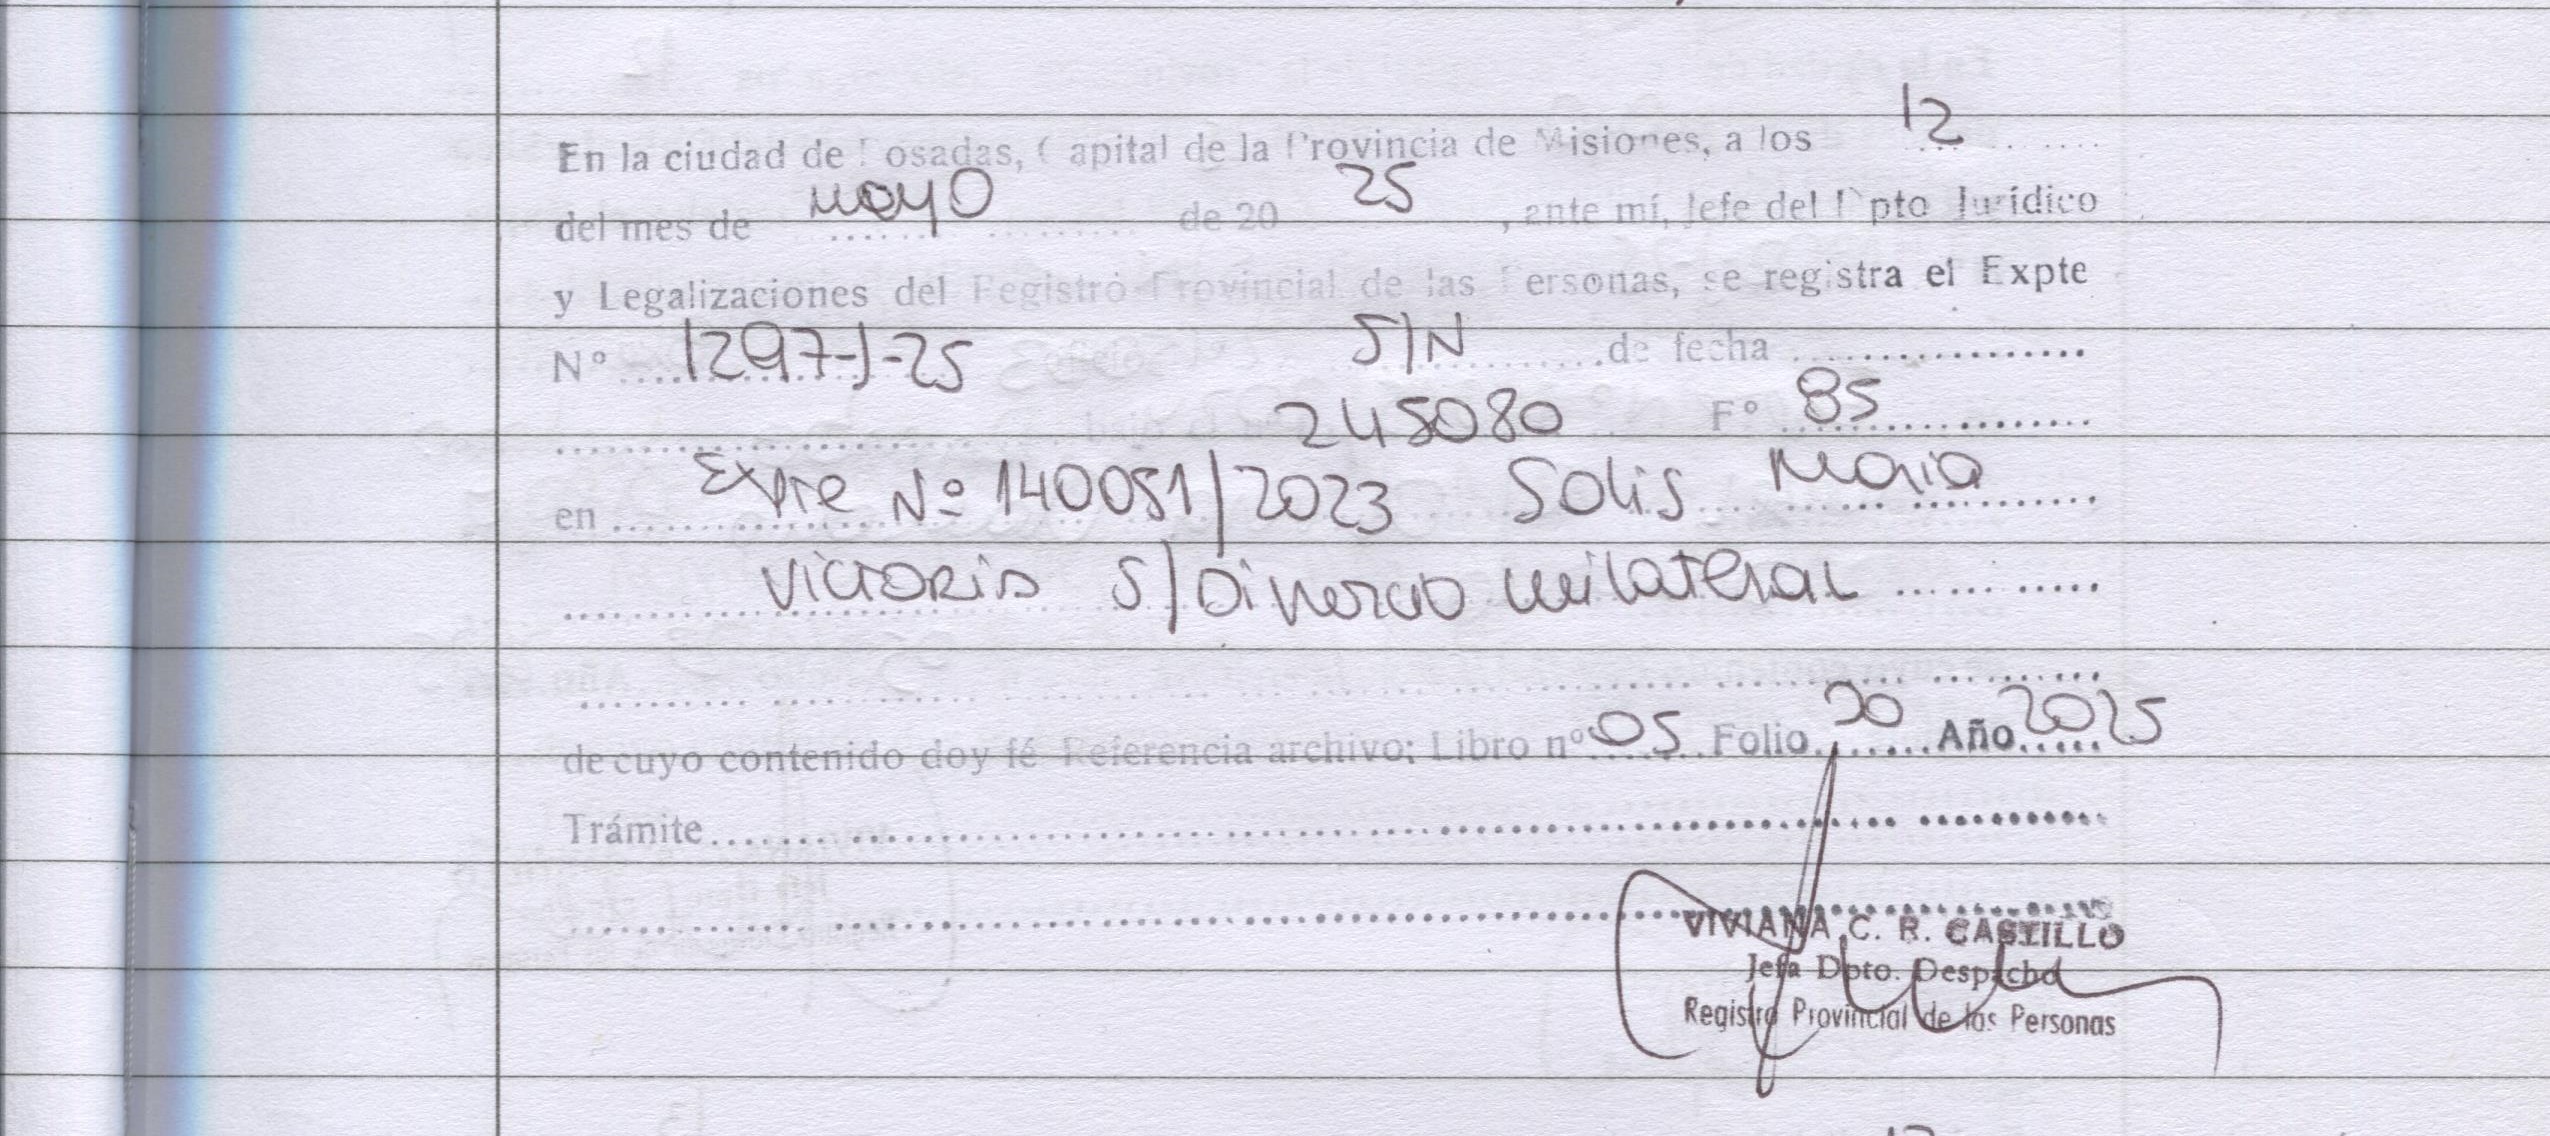 En la ciudad de Posadas, Capital de la Provincia de Misiones, a los 12
del mes de mayo de 20 25, ante mí, Jefe del Dpto Jurídico
y Legalizaciones del Registro Provincial de las Personas, se registra el Expte
Nº 1297-J-25 S/N de fecha
245080 Fº 85
en Expte Nº 140051/2023 Solis Maria
Victoria S/Divorcio unilateral
de cuyo contenido doy fé Referencia archivo; Libro nº 05 Folio Año 2025
Trámite
VIVIANA C. R. CASTILLO
Jefa Dpto. Despacho
Registro Provincial de las Personas